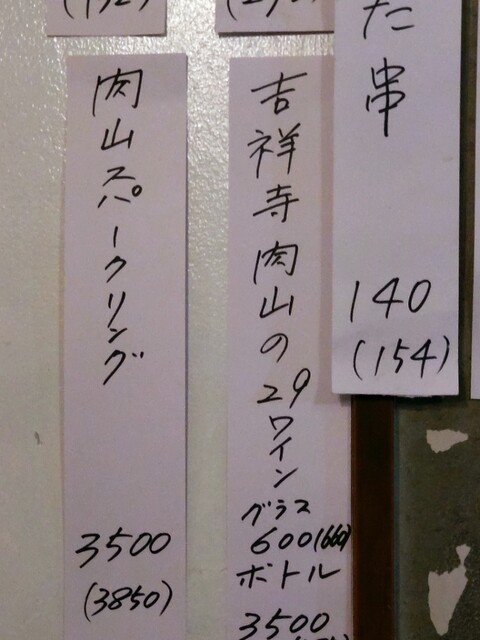 た串
140
(154)
吉祥寺肉山の29ワイン
グラス
600(660)
ボトル
3500
肉山スパークリング
3500
(3850)